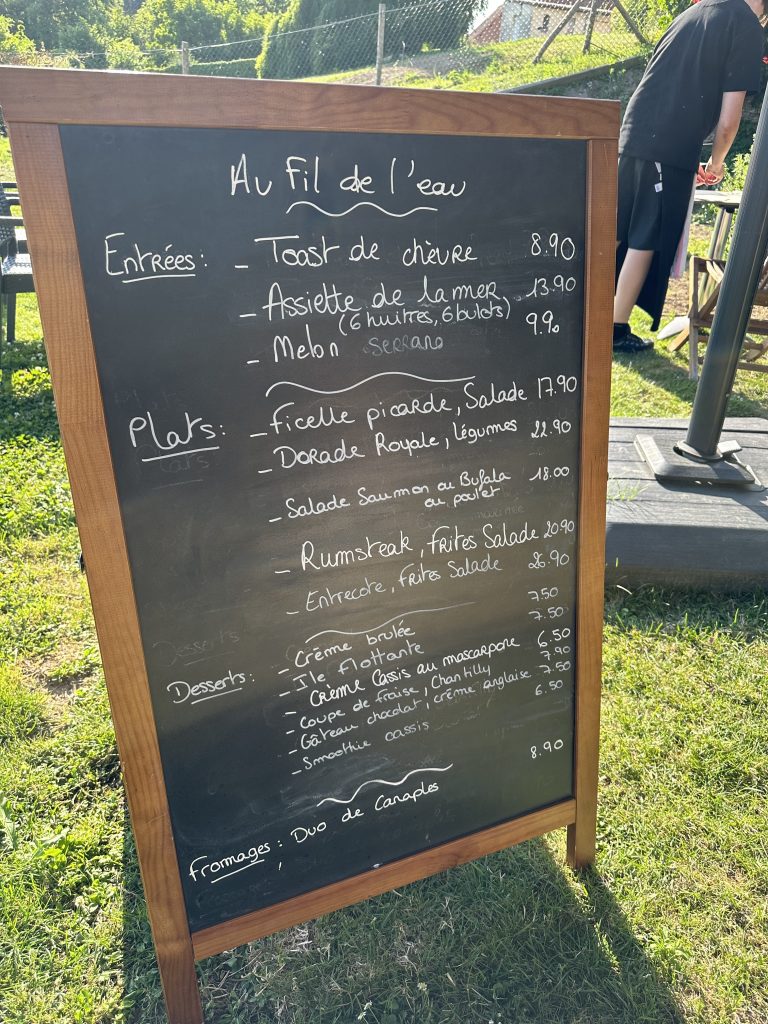 Au fil de l'eau
Entrées : - Toast de chèvre 8.90
- Assiette de la mer 13.90
(6 huitres, 6 bulots)
- Melon serrano 9.90
Plats : - ficelle picarde, Salade 17.90
- Dorade Royale, légumes 22.90
- Salade Saumon ou Bufala 18.00
ou poulet
- Rumsteak, frites Salade 20.90
- Entrecote, frites Salade 26.90
Desserts : - Crème brulée 7.50
- Ile flottante 7.50
- Crème Cassis au mascarpone 6.50
- Coupe de fraise, Chantilly 7.90
- Gâteau chocolat, crème anglaise 7.50
- Smoothie cassis 6.50
Fromages : Duo de Canaples 8.90